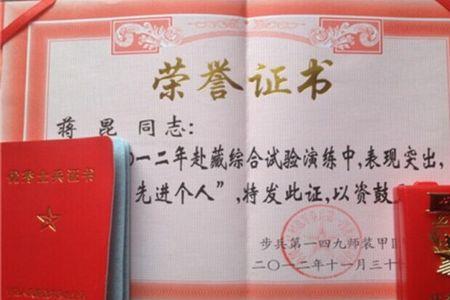 荣誉证书
蒋昆 同志:
一二年赴藏综合试验演练中,表现突出,
先进个人”,特发此证,以资鼓
优秀士兵证书
步兵第一四九师装甲
二〇一二年十一月三十